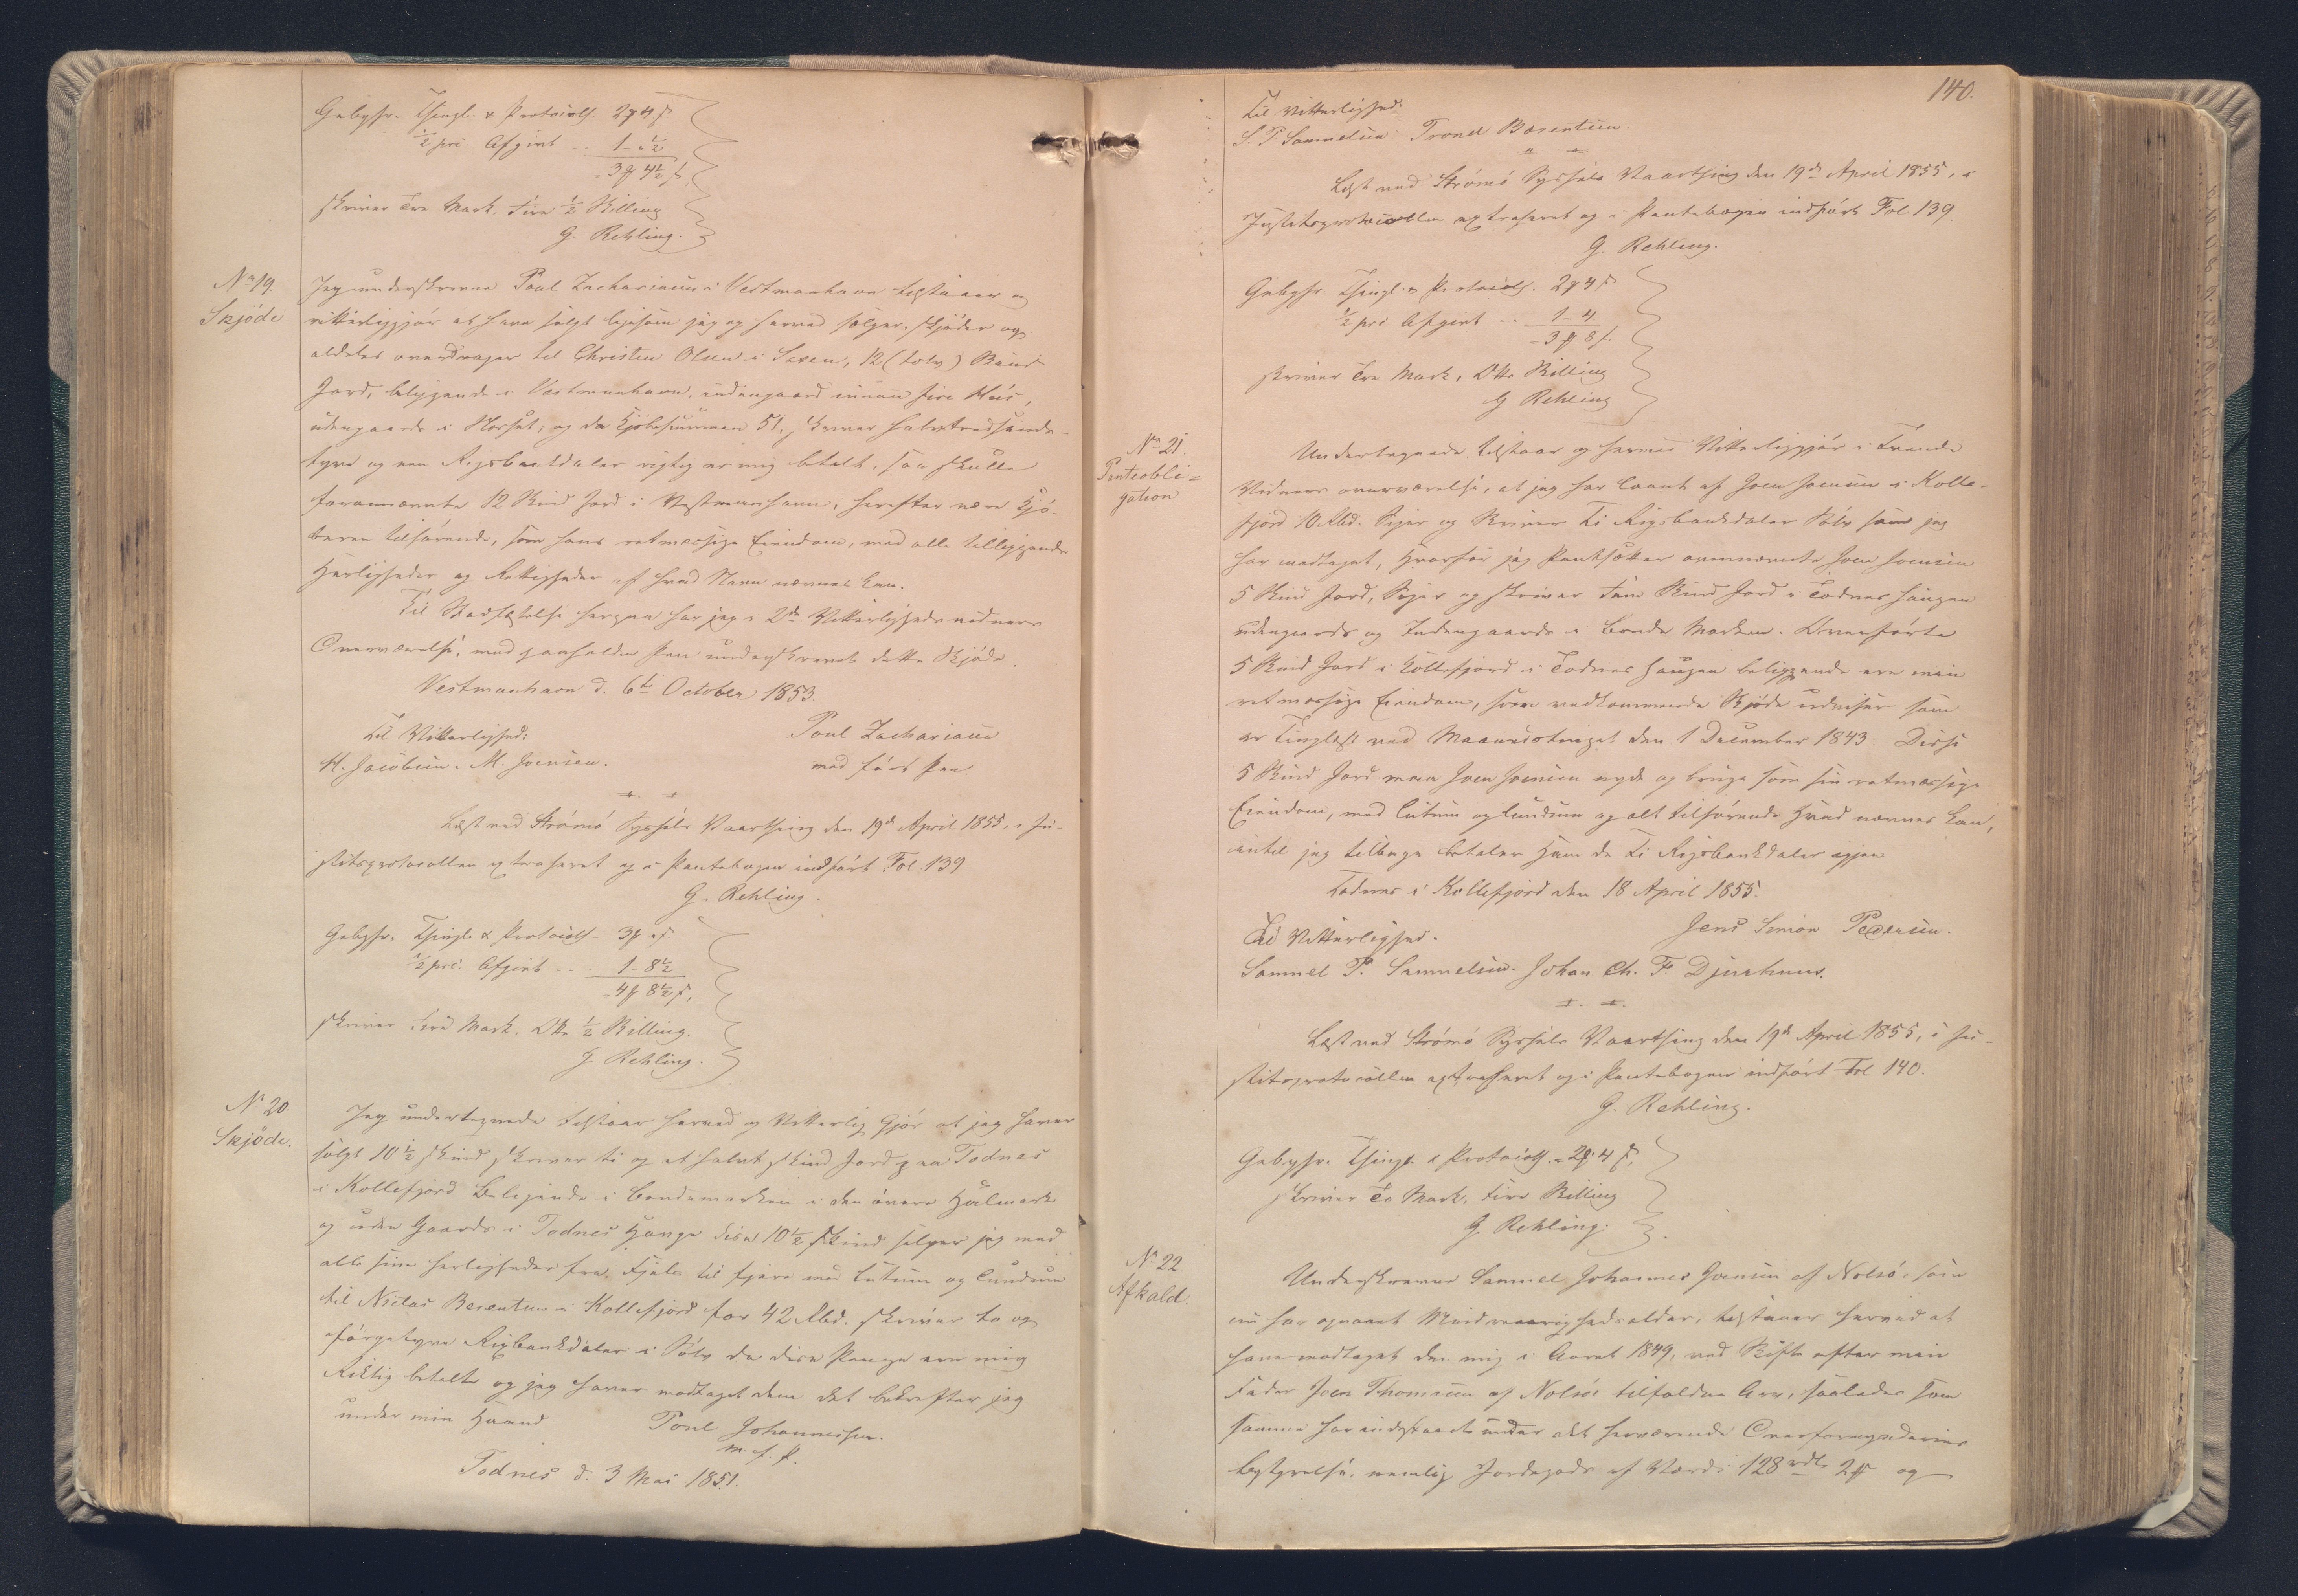 Gebyhr. Thingl. & Protocoll 2 ₰ 4 ſ
½ prc. Afgivt .. 1 - „ ½
3 ₰ 4½ ſ,
skriver Tre Mark, fire ½ Skilling
G. Rehling.
No 19.
Skjöde
Jeg underskrevne Poul Zachariasen i Vestmanhavn tilstaaer og
vitterliggjör at have solgt ligesom jeg og herved sælger, skjöder og
aldeles overdrager til Christen Olsen i Saxen, 12 (tolv) Skind
Jord, beliggende i Vestmanhavn, indengaard innan fire Hús,
udengaards i Norset, og da Kjöbesummen 51, skriver halvtredsinds-
tyve og een Rigsbankdaler rigtig er mig betalt, saa skulle
forannævnte 12 Skind Jord i Vestmanhavn, herefter være Kjö-
beren tilhörende, som hans retmæssige Eiendom, med alle tilliggende
Herligheder og Rettigheder af hvad Navn nævnes kan.
Til Stadfæstelse herpaa har jeg i 2de Vitterligheds vidners
Overværelse, med paaholden Pen underskrevet dette Skjöde.
Vestmanhavn d. 6te October 1853.
Til Vitterlighed: Poul Zachariasen
H. Jacobsen. M. Joensen. med fört Pen
Læst ved Strömö Syssels Vaarthing den 19de April 1855, i Ju-
stitsprotocollen extraheret og i Pantebogen indfört Fol 139
G. Rehling.
Gebyhr. Thingl. & Protocoll 3 ₰ „ ſ
½ prc. Afgivt .. 1 - 8½
4 ₰ 8½ ſ,
skriver fire Mark, Otte ½ Skilling.
G. Rehling.
No 20.
Skjöde.
Jeg undertegnede tilstaar herved og Vitterlig Gjör at jeg haver
solgt 10½ skind skriver ti og et halvt skind Jord paa Todnes
i Kollefjord Beligende i bondemarken i den övere Halmark
og uden Gaards i Todnes Hauge disse 10½ skind selger jeg med
alle sine herligheder fra Fjeld til fjære med lutum og lundum
til Niclas Berentsen i Kollefjord for 42 Rbd. skriver to og
förgetyve Rigbankdaler i Sölv da disse Penge ere mig
Riktig betalte og jeg haver modtaget dem det bekrefter jeg
under min Haand Poul Johannessen.
m. f. P.
Todnes d. 3 Mai 1851.
140.
Til Vitterlighed:
S. P. Samuelsen Trond Bærentsen.
Læst ved Strömö Syssels Vaarthing den 19de April 1855, i
Justitsprotocollen extraheret og i Pantebogen indfört Fol 139.
G. Rehling.
Gebyhr. Thingl. & Protocoll. 2 ₰ 4 ſ
½ prc Afgivt .. 1 - 4
3 ₰ 8 ſ.
skriver Tre Mark, Otte Skilling
G Rehling
No 21.
Panteobli=
gation
Undertegnede tilstaar og herved Vitterliggjör i Tvende
Vidners overværelse, at jeg har laant af Joen Joensen i Kolle-
fjord 10 Rbd. Siger og Skriver Ti Rigsbankdaler Sölv som jeg
har modtaget, hvorfor jeg Pantsætter ovennævnte Joen Joensen
5 Skind Jord, Siger og skriver fem Skind Jord i Todnes haugen
udengaards og Indengaards i Bonde Marken. Ovenförte
5 Skind Jord i Kollefjord i Todnes haugen beliggende ere min
retmæssige Eiendom, som vedkommende Skjöde udviser som
er Tinglæst ved Maanedstinget den 1 December 1843. Disse
5 Skind Jord maa Joen Joensen nyde og bruge som sin retmæssige
Eiendom, med lutum og lundum og alt tilhörende hvad nævnes kan,
indtil jeg tilbage betaler ham de Ti Rigsbankdaler igjen
Todnes i Kollefjord den 18 April 1855.
Til Vitterlighed. Jens Simon Pedersen.
Samuel P. Samuelsen. Johan Ch. F. Djurhuus.
Læst ved Strömö Syssels Vaarthing den 19de April 1855, i Ju-
stitsprotocollen extraheret og i Pantebogen indfört Fol 140.
G. Rehling.
Gebyhr. Thingl. & Protocoll. 2 ₰ 4 ſ,
skriver To Mark, fire Skilling
G. Rehling.
No 22.
Afkald.
Underskrevne Samuel Johannes Joensen af Nolsö, som
nu har opnaaet Mindreaarighedsalder, tilstaaer herved at
have modtaget den mig i Aaret 1849, ved Skifte efter min
Fader Joen Thomasen af Nolsö tilfaldne Arv, saaledes som
samme har indestaaet under det herværende Overformynderies
bestyrelse, nemlig Jordegods af Værdi 128 rdlr 2 ₰ og